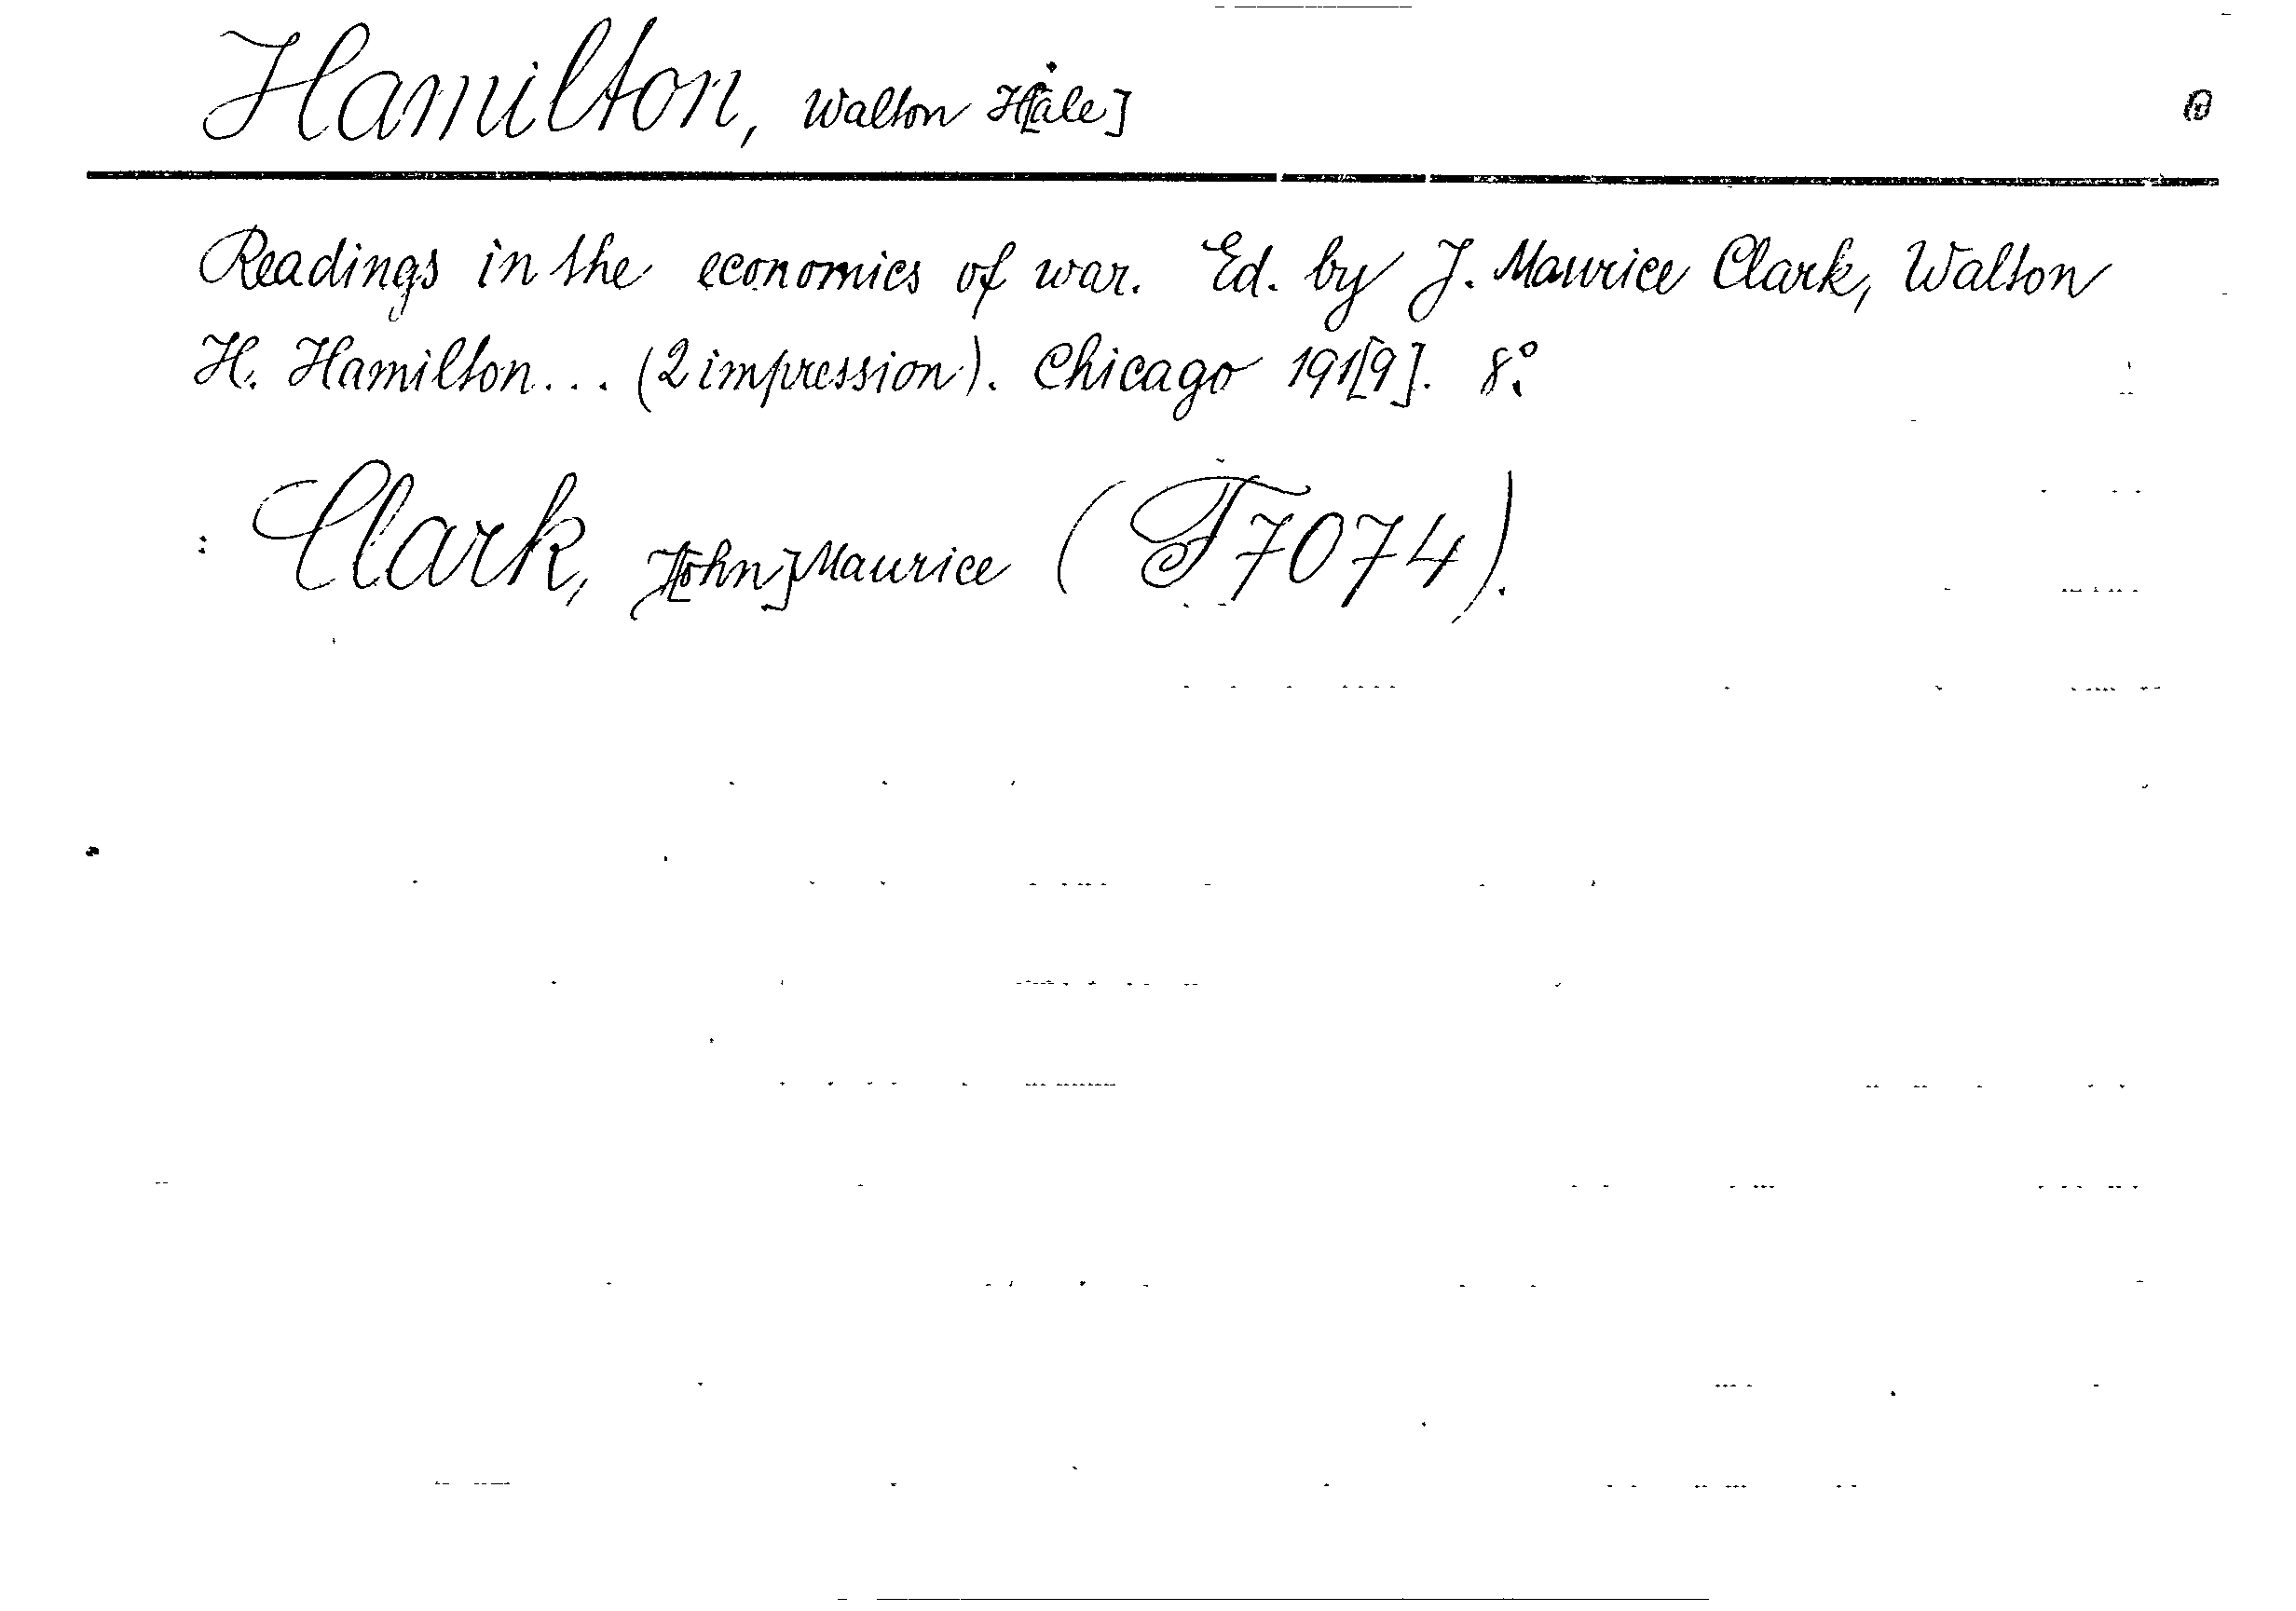 Hamilton, Walton H[ale]
Readings in the economics of war. Ed. by J. Maurice Clark, Walton
H. Hamilton... (2 impression). Chicago 191[9]. 8°.
: Clark, J[ohn] Maurice (T7074).